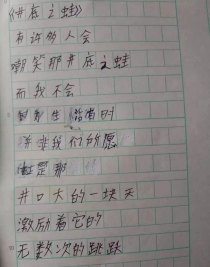 《井底之蛙》
有许多人会
嘲笑那井底之蛙
而我不会
生 时
并非我们的愿
是那
井口大的一块天
激励着它的
无数次的跳跃